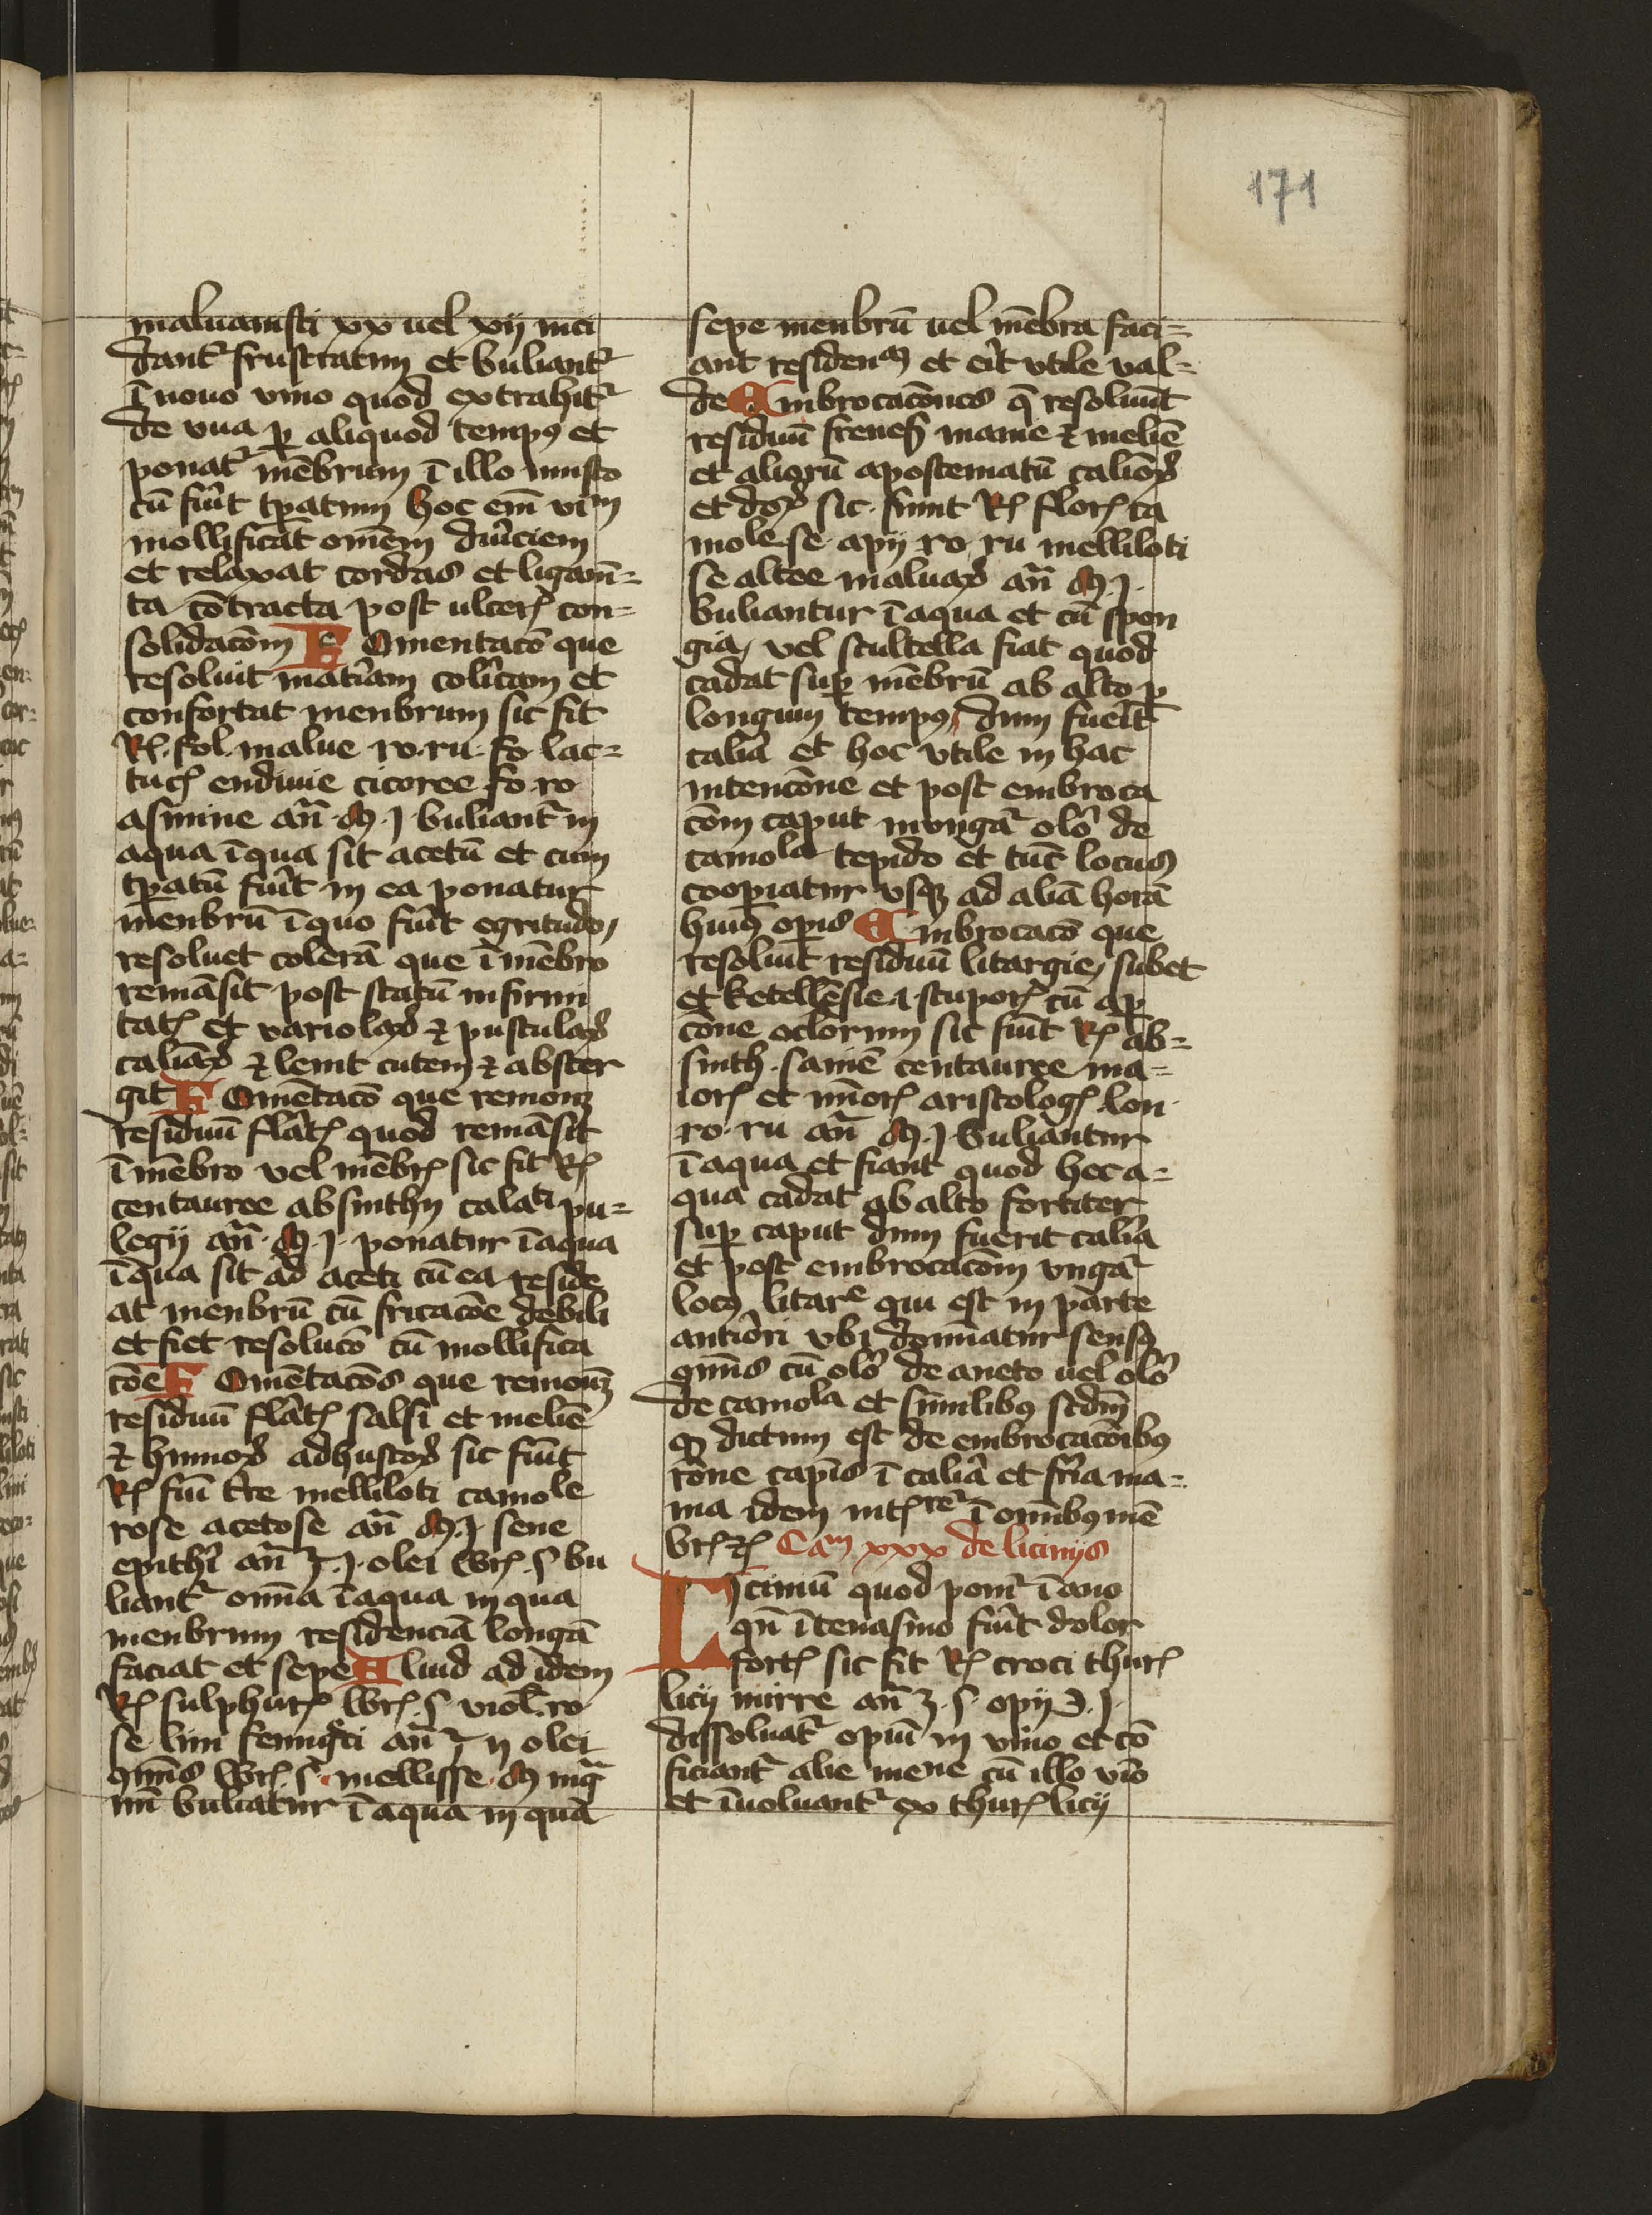 171
maluauisti xx uel xij inci
dant᷑ frustratim et buliant᷑
ī nouo vino quod extrahit᷑
de vua ꝑ aliquod tempꝰ et
ponat᷑ mēbrum ī illo musto
cū fūit tꝑatum hoc em̄ vim
mollificat omēm dūiciem
et relaxat cordas et ligam̄=
ta cōtracta post ulceꝝ con=
solidacōm Fomentacō que
resoluit matīam colīcam et
confortat menbrum sic fit
Rꝝ. fol. malue ro. ru. fo. lac=
tucꝝ endiuie cicoree fo. ro
asmine an̄. M. j buliant᷑ in
aqua ī qua sit acetū et cum
tꝑatū fūit in ea ponatur
menbrū ī quo fūit egritudo
resoluet colerā que ī mēbro
remāsit post statū infirmi
tatꝝ et variolaꝝ ⁊ pustulaꝝ
caliāꝝ ⁊ lenit cutem ⁊ abster
git Fomētacō que remouꝫ
residuū flātꝝ quod remāsit
ī mēbro vel mēbrꝝ sic fit Rꝝ
centauree absinthij calati pu=
legij an̄. M. j. ponatur ī aqua
ī qua sit ad aceti cū ea reside
at menbrū cū fricacōe debili
et fiet resolucō cū mollifica
cōe Fomētacōs que remouꝫ
residuū flātꝝ salsi et melīe
⁊ humoꝝ adhustoꝝ sic fiūt
Rꝝ fūi tr̄e melliloti camole
rose acetose an̄ M. j sene
epithi an̄ ℥. j. olei lbrꝝ. s bu
liant᷑ om̄ia ī aqua in qua
menbrum residenciā longā
faciat et sepe Aliud ad idem
Rꝝ sulphurꝝ lbrꝝ. s viol. ro
se lini fenugͨci an̄ ℥ ij olei
9mīs lbrꝝ. s. mellisse. M mg̃
nū buliatur ī aqua in qua
sepe menbrū uel mēbra faci=
ant residenam et eīt vtile val=
de Embrocacōnes q̄ resoluūt
residuū frenes̄ manie ⁊ melīe
et alioꝝ apostematū caliōꝝ
et doꝝ sic. fiunt Rꝝ florꝝ ca
mole. se apij ro. ru melliloti
se altee maluaꝝ an̄ M. j.
buliantur ī aqua et cū spon
gia, vel scultella fiat quod
cadat suꝑ mēbrū ab alto ꝑ
longum tempꝰ dum fueīt
calīa et hoc vtile in hac
intencōne et post embroca
cōm caput inungat᷑ olō de
camola tepido et tūc locus
cooꝑiatur vsqꝫ ad aliā horā
huiꝰ oꝑis Embrocacō que
resoluit residuū litargie, subet
et ketellēsie ⁊ stuporꝝ cū oꝑ
cōne oclorum sic fiūt Rꝝ ab=
sinth. saniē centauree ma=
iorꝝ et mīorꝝ aristologꝝ. lon.
ro. ru an̄ M. j buliantur
ī aqua et fiant quod hec a=
qua cadat ab alto fortiter
suꝑ caput dum fuerit calīa
et post embrocacōm vngat᷑
locꝰ litare qui est in parte
antīori vbi domīatur sensꝰ
9mīs cū olō de aneto uel olō
de camola et similibꝰ scdm̄
ꝙ dictum est de embrocacōibꝰ
rōne capīs ī calīa et frīa ma=
ma idem intꝝre ī om̄ibꝰ mē
brꝝ ⁊ꝝ Cam xxx de licinijs
Licimū quod ponit᷑ ī ano
qn̄ ī tenasmo fūit dolor
fortꝝ sic fit Rꝝ croci thurꝝ
licij mirre an̄ ʒ. s. opij ℈. j.
dissoluat᷑ opiū in vino et cō
ficiant᷑ alie mene cū illo vīo
et īuoluant᷑ ex thurꝝ licij